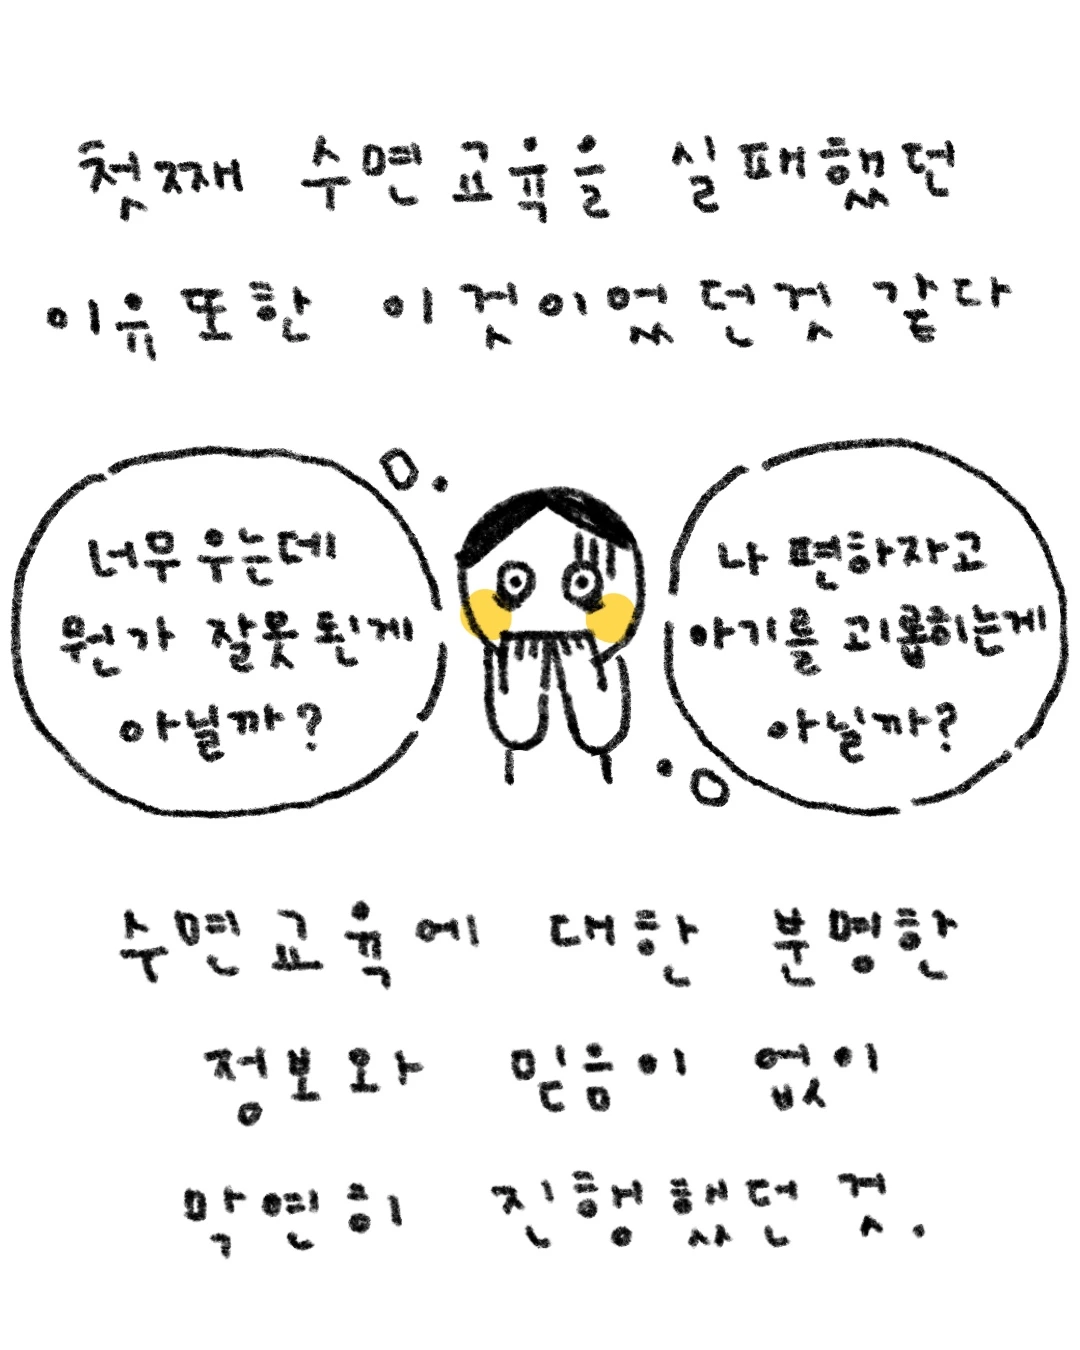 첫째 수면교육을 실패했던
이유또한 이것이었던것 같다
너무 우는데
뭔가 잘못 된게
아닐까?
나 편하자고
아기를 괴롭히는게
아닐까?
수면교육에 대한 분명한
정보와 믿음이 없이
막연히 진행했던 것.